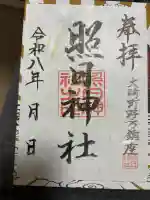 奉拝
大崎町野方鎮座
照日神社
令和八年 月 日